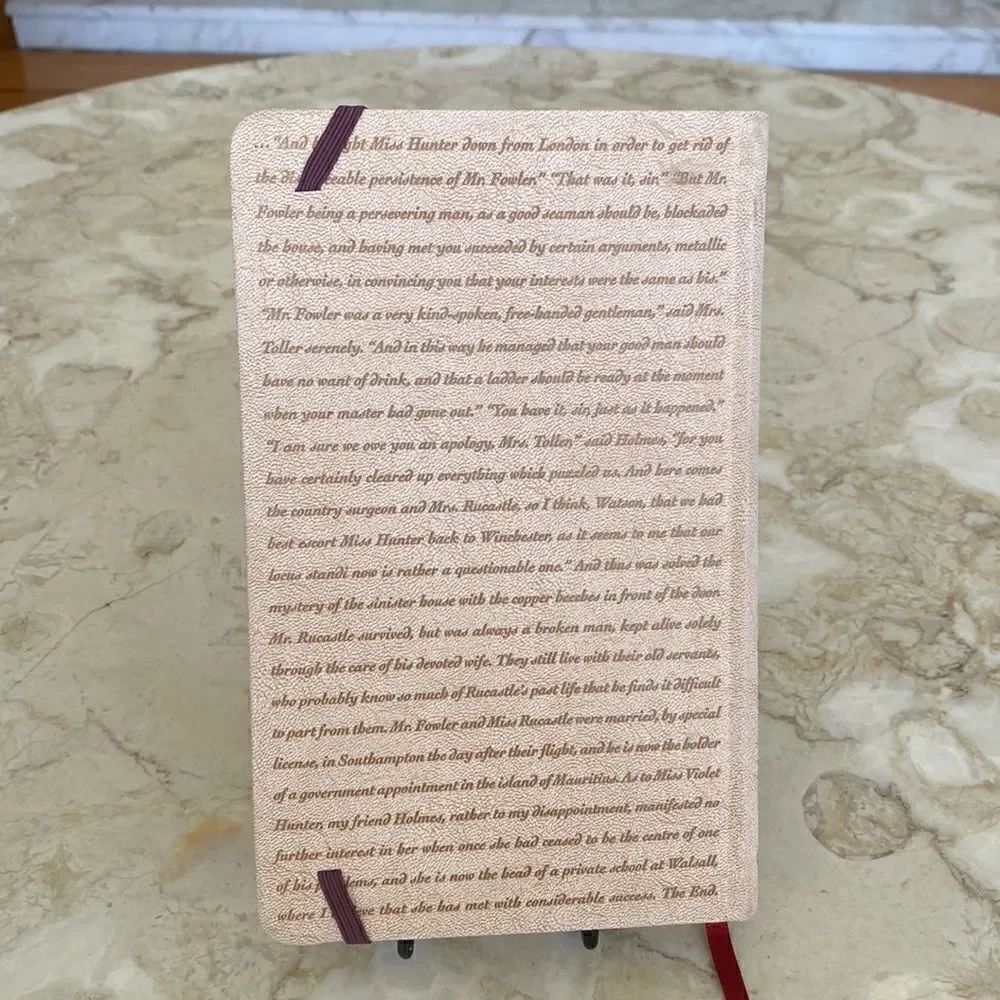 ... "And ght Miss Hunter down from London in order to get rid of
the dis eeable persistence of Mr. Fowler." "That was it, sir." "But Mr.
Fowler being a persevering man, as a good seaman should be, blockaded
the house, and having met you succeeded by certain arguments, metallic
or otherwise, in convincing you that your interests were the same as his."
"Mr. Fowler was a very kind-spoken, free-handed gentleman," said Mrs.
Toller serenely. "And in this way he managed that your good man should
have no want of drink, and that a ladder should be ready at the moment
when your master had gone out." "You have it, sir, just as it happened."
"I am sure we owe you an apology, Mrs. Toller," said Holmes, "for you
have certainly cleared up everything which puzzled us. And here comes
the country surgeon and Mrs. Rucastle, so I think, Watson, that we had
best escort Miss Hunter back to Winchester, as it seems to me that our
locus standi now is rather a questionable one." And thus was solved the
mystery of the sinister house with the copper beeches in front of the door.
Mr. Rucastle survived, but was always a broken man, kept alive solely
through the care of his devoted wife. They still live with their old servants,
who probably know so much of Rucastle's past life that he finds it difficult
to part from them. Mr. Fowler and Miss Rucastle were married, by special
license, in Southampton the day after their flight, and he is now the holder
of a government appointment in the island of Mauritius. As to Miss Violet
Hunter, my friend Holmes, rather to my disappointment, manifested no
further interest in her when once she had ceased to be the centre of one
of his p lems, and she is now the head of a private school at Walsall,
where I ve that she has met with considerable success. The End.